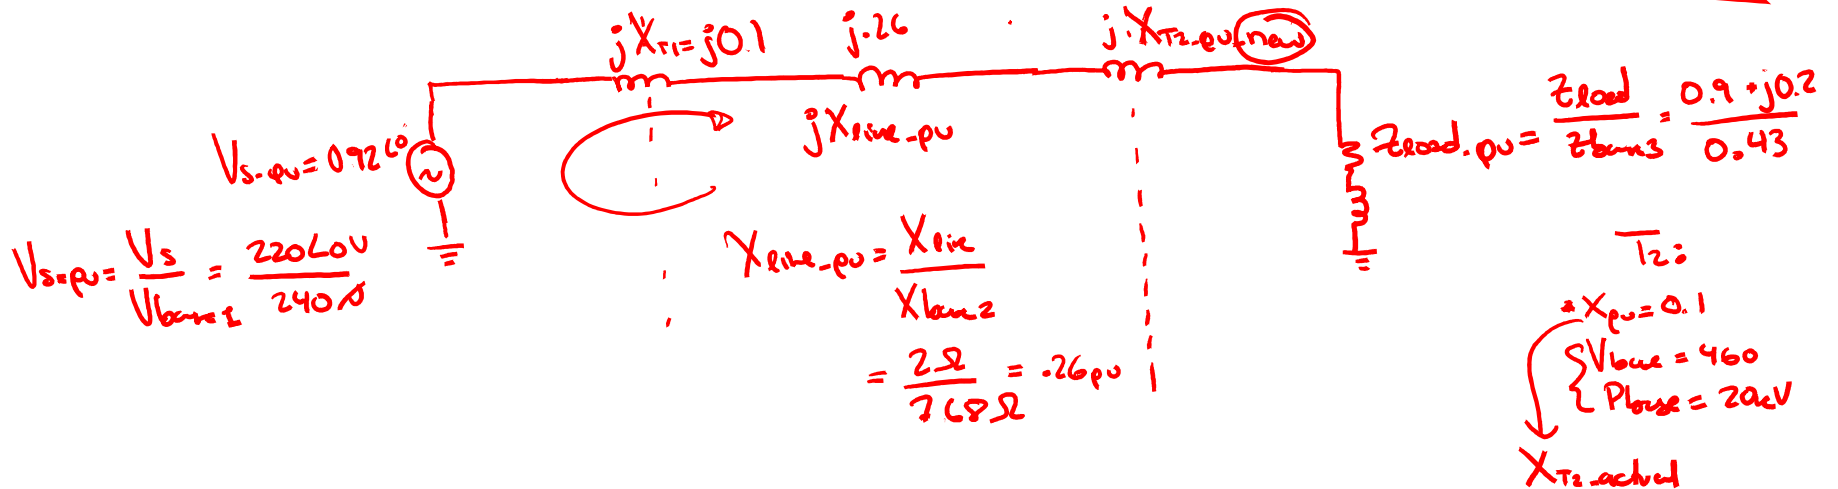 jX_T1 = j0.1
j.26
j.X_T2-pu-new
jX_line-pu
V_s-pu = 0.92∠0
V_s-pu = V_s / V_base1 = 220∠0V / 240
X_line-pu = X_line / X_base2
= 2Ω / 7.68Ω = .26pu
Z_load.pu = Z_load / Z_base3 = 0.9 + j0.2 / 0.43
T2:
* X_pu = 0.1
{ V_base = 460
P_base = 20kV
X_T2-actual